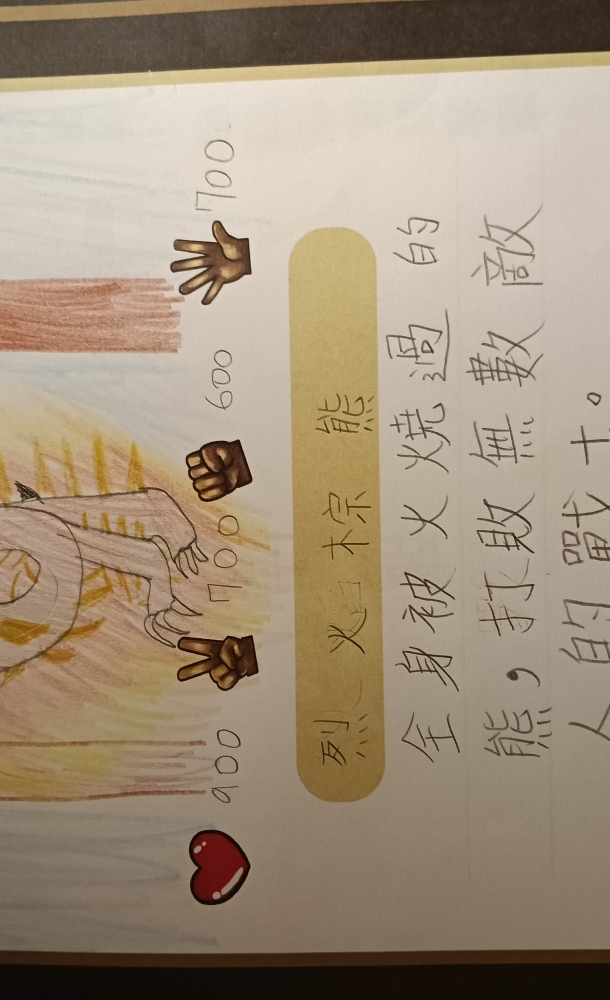 900 700 600 700
烈焰棕熊
全身被火燒過的
熊，打敗無數敵
人的戰士。